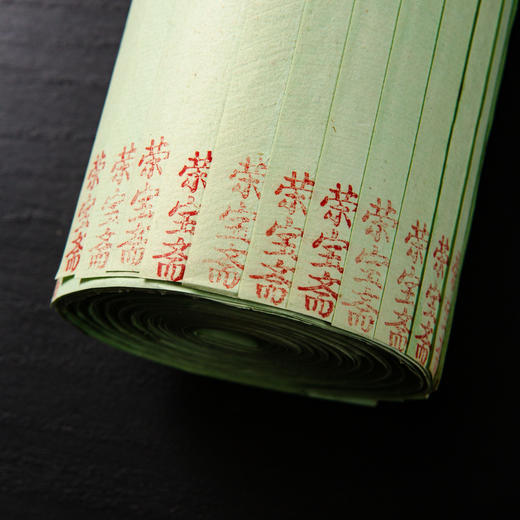 荣宝斋
荣宝斋
荣宝斋
荣宝斋
荣宝斋
荣宝斋
荣宝斋
荣宝斋
荣宝斋
荣宝斋